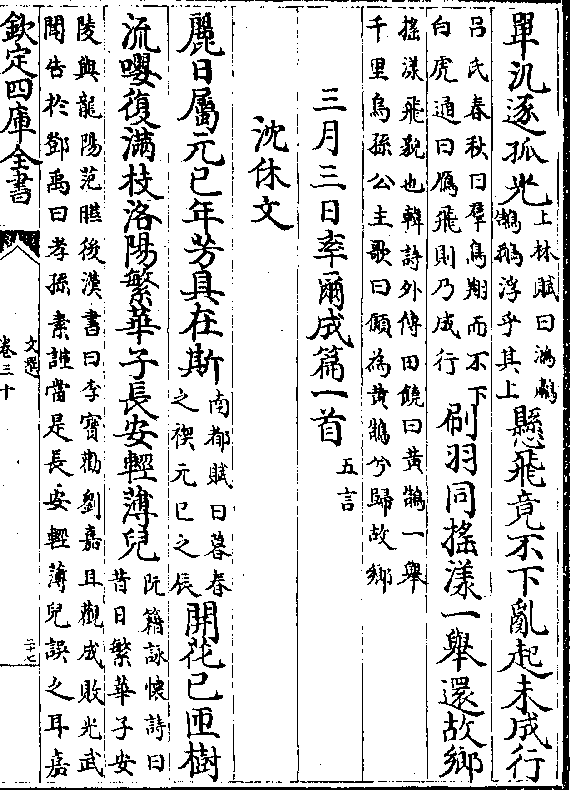 單汎逐孤光上林賦曰鴻鷫鵠鴇浮乎其上懸飛竟不下亂起未成行
呂氏春秋曰羣鳥翔而不下白虎通曰鴈飛則乃成行刷羽同搖漾一舉還故鄉
搖漾飛貌也韓詩外傳田饒曰黃鵠一舉千里烏孫公主歌曰願為黃鵠兮歸故鄉
三月三日率爾成篇一首五言
沈休文
麗日屬元巳年芳具在斯南都賦曰暮春之禊元巳之辰開花已匝樹
流嚶復滿枝洛陽繁華子長安輕薄兒阮籍詠懷詩曰昔日繁華子安
陵與龍陽范曄後漢書曰李寶勸劉嘉且觀成敗光武聞告於鄧禹曰孝孫素謹當是長安輕薄兒誤之耳嘉
欽定四庫全書
文選
卷三十
二十七